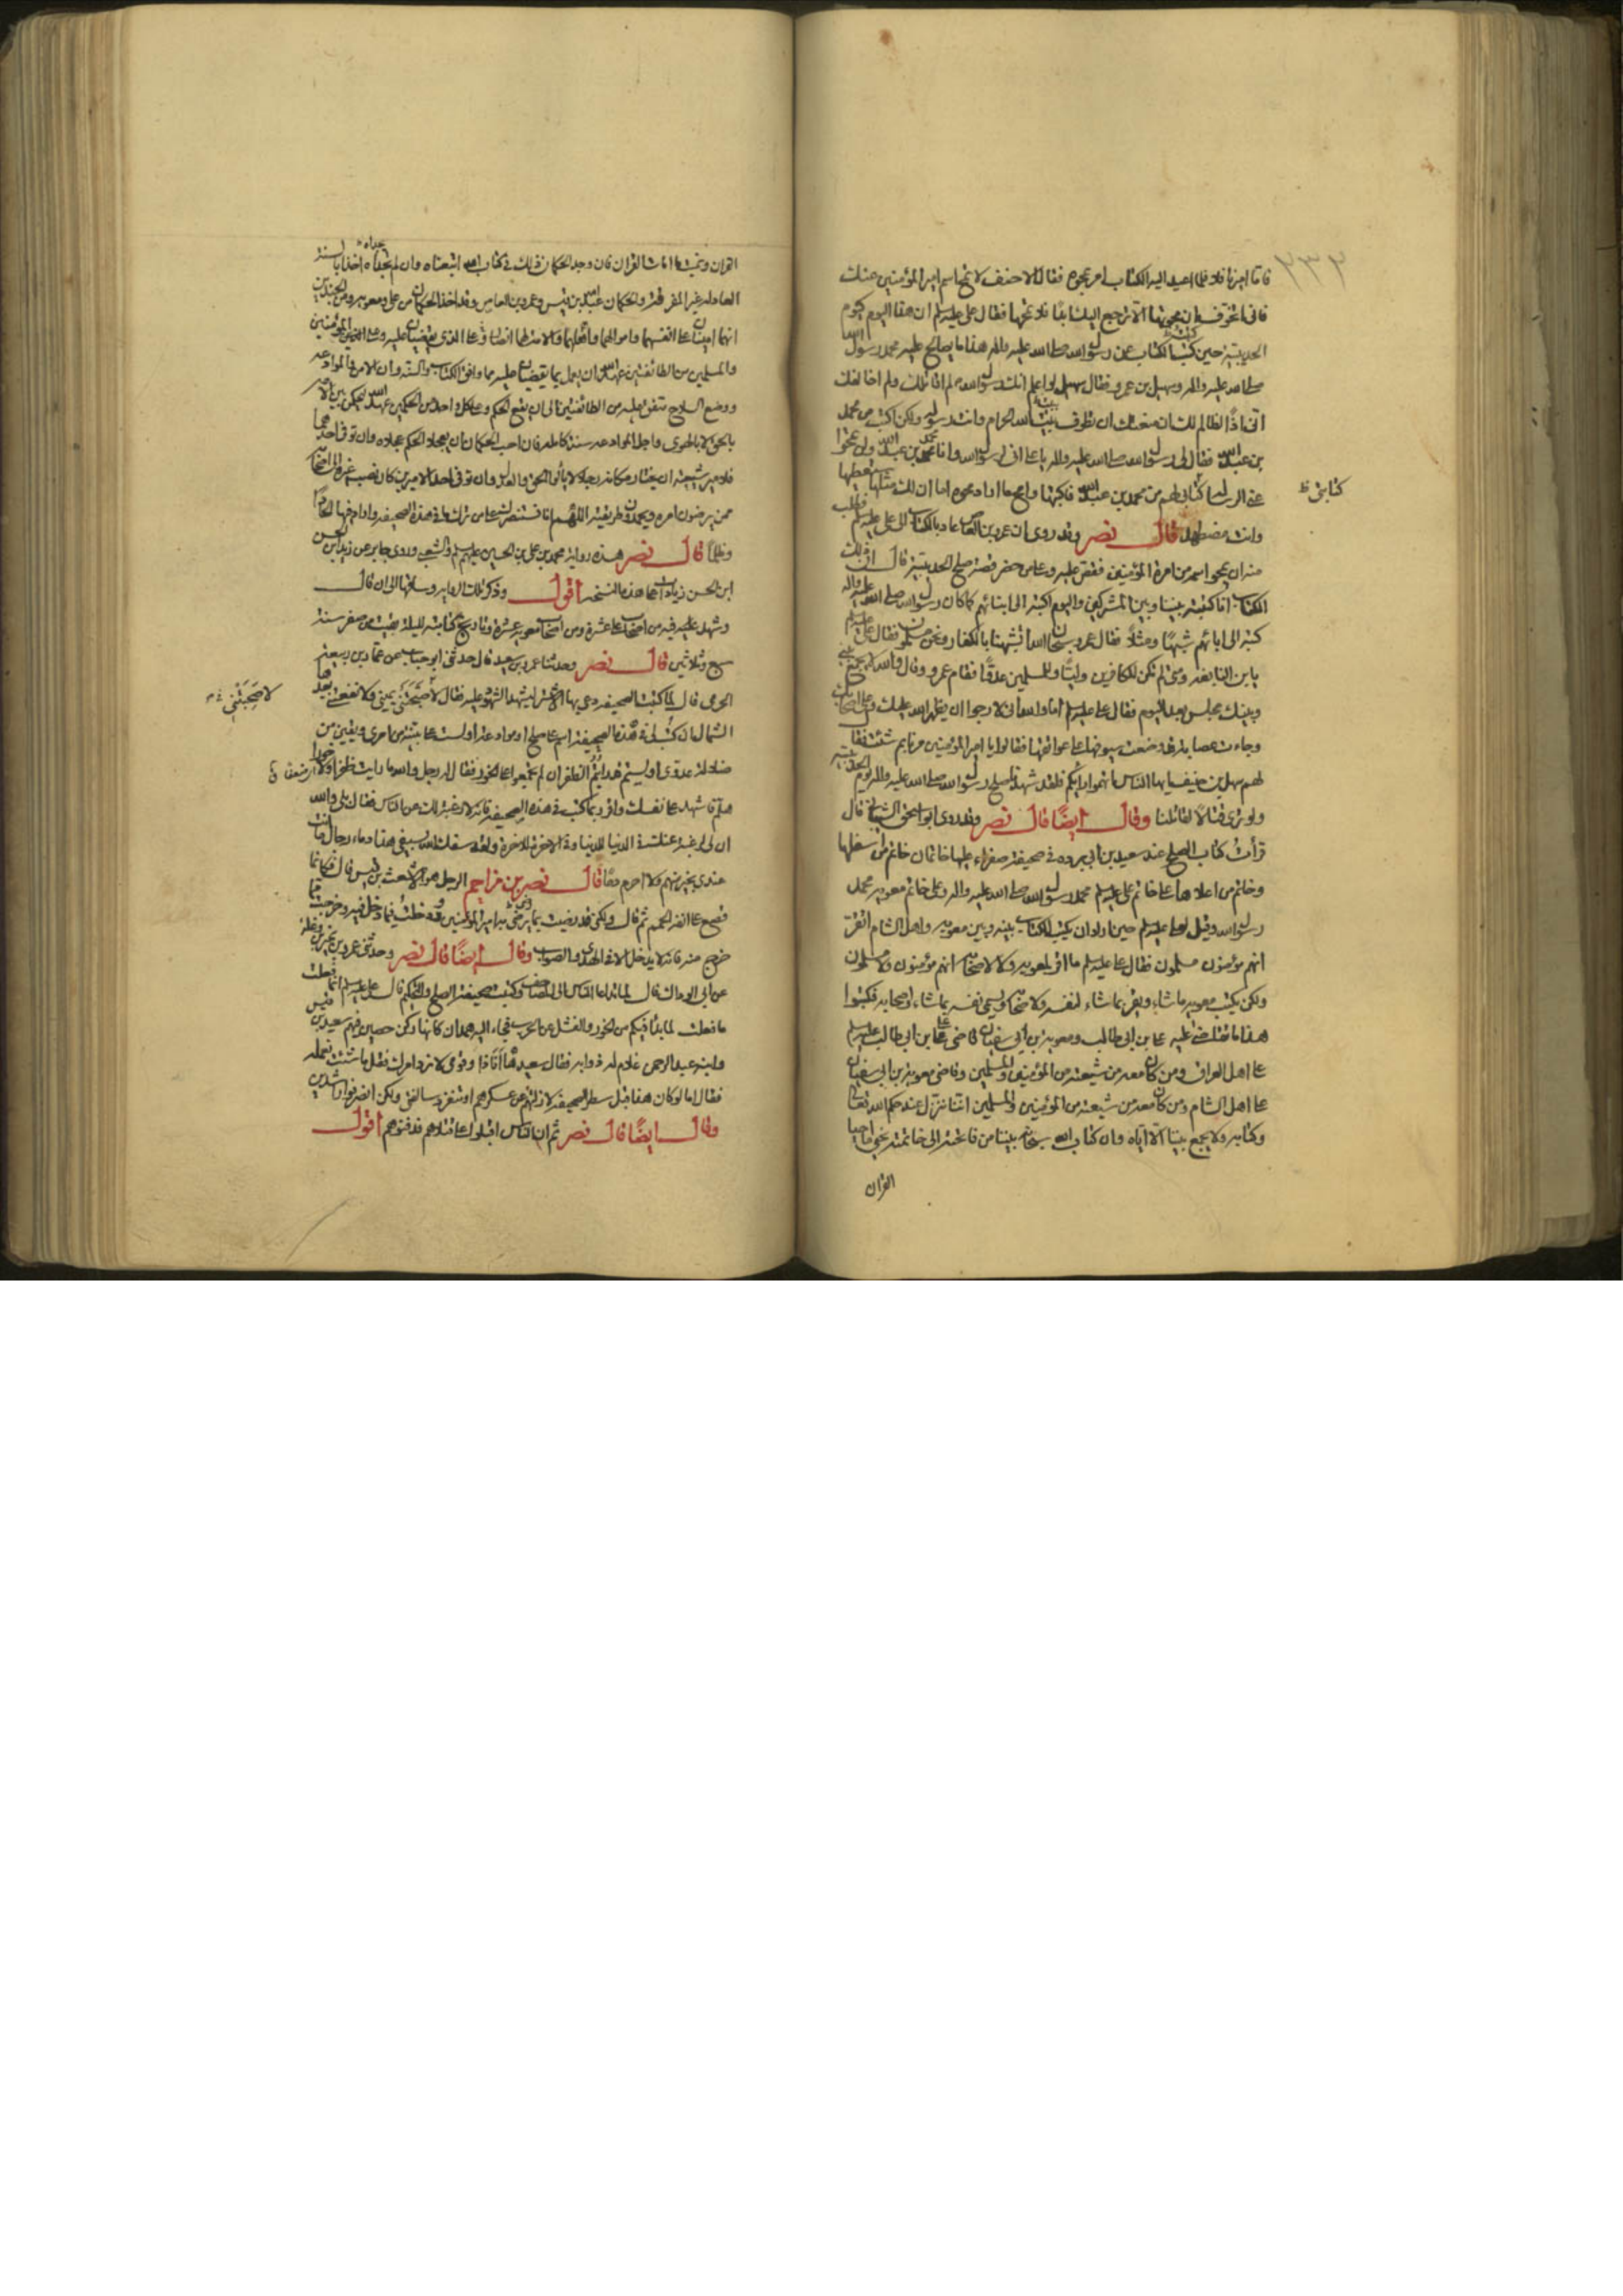 ٢٣٣
فاما اميرنا فلا فلما اعيد اليه الكتاب امر بمحوه فقال الاحنف لا تمح اسم امير المؤمنين عنك
فاني اتخوف ان محوتها الا ترجع اليك ابدا فلا تمحها فقال علي عليه السلم ان هذا اليوم كيوم
الحديبية حين كتبت الكتاب عن رسول الله صلى الله عليه واله هذا ما يصالح عليه محمد رسول الله
صلى الله عليه واله وسهيل بن عمرو فقال سهيل لو اعلم انك رسول الله لم اقاتلك ولم اخالفك
اني اذًا لظالم لك ان منعتك ان تطوف ببيت الله الحرام وانت رسوله ولكن اكتب من محمد
بن عبد الله فقال لي رسول الله صلى الله عليه واله يا علي اني لرسول الله وانا محمد بن عبد الله ولن يمحوا
عني الرسالة كتابي لهم من محمد بن عبد الله فاكتبها وامح ما اراد محوه اما ان لك مثلها ستعطيها
كتابتي ظ
وانت مضطهد قال نصر وقد روي ان عمرو بن العاص عاد بالكتاب الى علي عليه السلم فطلب
منه ان يمحو اسمه من امرة المؤمنين فقص عليه وعلى من حضر قصة صلح الحديبية قال ان ذلك
الكتاب انا كتبته بيننا وبين المشركين واليوم اكتبه الى ابنائهم كما كان رسول الله صلى الله عليه واله
كتبه الى ابائهم شبهًا ومثلاً فقال عمرو سبحان الله اتشبهنا بالكفار ونحن مسلمون فقال علي عليه السلم
يا بن النابغة ومتى لم تكن للكافرين وليًّا وللمسلمين عدوًّا فقام عمرو وقال والله لا يجمع بيني
وبينك مجلس بعد اليوم فقال علي عليه السلم اما والله اني لارجو ان يظهر الله عليك وعلى اصحابك
وجاءت عصابة قد وضعت سيوفها على عواتقها فقالوا يا امير المؤمنين مرنا بم شئت فقال
لهم سهل بن حنيف ايها الناس اتهموا رايكم فلقد شهدنا صلح رسول الله صلى الله عليه واله يوم الحديبية
ولو نرى قتالاً لقاتلنا وقال ايضًا قال نصر وقد روى ابو اسحق الشيباني قال
قرأت كتاب الصلح عند سعيد بن ابي بردة في صحيفة صفراء عليها خاتمان خاتم من اسفلها
وخاتم من اعلاها على خاتم علي عليه السلم محمد رسول الله صلى الله عليه واله وعلى خاتم معوية محمد
رسول الله وقيل لعلي عليه السلم حين اراد ان يكتب الكتاب بينه وبين معوية واهل الشام اتقر
انهم مؤمنون مسلمون فقال علي عليه السلم ما اقر لمعوية ولا لاصحابه انهم مؤمنون ولا مسلمون
ولكن يكتب معوية ما شاء ويقر بما شاء لنفسه ولاصحابه ويسمي نفسه بما شاء واصحابه فكتبوا
هذا ما تقاضى عليه علي بن ابي طالب ومعوية بن ابي سفيان قاضى علي بن ابي طالب عليه السلم
على اهل العراق ومن كان معه من شيعته من المؤمنين والمسلمين وقاضى معوية بن ابي سفيان
على اهل الشام ومن كان معه من شيعته من المؤمنين والمسلمين اننا ننزل عند حكم الله تعالى
وكتابه ولا يجمع بيننا الا اياه وان كتاب الله سبحانه بيننا من فاتحته الى خاتمته نحيي ما احيا
القران
القران ونميت ما امات القران فان وجد الحكمان ذلك في كتاب الله اتبعناه وان لم يجداه اخذا بالسنة
العادلة غير المفرقة والحكمان عبد الله بن قيس وعمرو بن العاص وقد اخذ الحكمان من علي ومعوية ومن الجندين
انهما امينان على انفسهما واموالهما واهلهما والامة لهما انصار وعلى الذي يقضيان عليه وعلى المؤمنين
والمسلمين من الطائفتين عهد الله ان يعمل بما يقضيان عليه مما وافق الكتاب والسنة وان الامن والموادعة
ووضع السلاح متفق عليه من الطائفتين الى ان يقع الحكم وعلى كل واحد من الحكمين عهد الله ليحكمن بين الامة
بالحق لا بالهوى واجل الموادعة سنة كاملة فان احب الحكمان ان يعجلا الحكم عجلاه وان توفي احدهما
فلامير شيعته ان يختار مكانه رجلا لا يألوا الحق والعدل وان توفي احد الاميرين كان نصب غيره الى اصحابه
ممن يرضون امره ويحمدون طريقته اللهم انا نستنصرك على من ترك ما في هذه الصحيفة واراد فيها الحادًا
وظلمًا قال نصر هذه رواية محمد بن علي بن الحسين عليهم السلم والشعبي وروى جابر عن زيد ابن الحسن
ابن الحسن زيادات على هذه النسخة اقول وذكر تلك الرواية وساقها الى ان قال
وشهد عليه فيه من اصحاب علي عشرة ومن اصحاب معوية عشرة وتاريخ كتابته لليلة بقيت من صفر سنة
سبع وثلاثين قال نصر وحدثنا عمرو بن سعيد قال حدثني ابو جناب عن عمار بن ربيعة
الجرمي قال لما كتبت الصحيفة دعي بها الاشتر ليشهد الشهود عليه فقال لا صحبتني يميني ولا نفعتني بعدها
لا صَحِبَتْنِي
الشمال ان كتب لي في هذه الصحيفة اسم على صلح او موادعة اولست على بينة من امري ويقين من
ضلالة عدوي اولستم قد رايتم الظفر ان لم تجمعوا على الخور فقال له رجل والله ما رايت ظفرا ولا خورا
هلم فاشهد على نفسك واقرر بما كتب في هذه الصحيفة فانه لا رغبة لك عن الناس فقال بلى والله
ان لي لرغبة عنك في الدنيا للدنيا وفي الاخرة للاخرة ولقد سفك الله بسيفي هذا دماء رجال ما انت
عندي بخير منهم ولا احرم دمًا قال نصر بن مزاحم الرجل هو الاشعث بن قيس قال فكانما
قصع على انفه الحمم ثم قال ولكني قد رضيت بما يرضى به امير المؤمنين ودخلت فيما دخل فيه وخرجت مما
خرج منه فانه لا يدخل الا في الهدى والصواب وقال ايضًا قال نصر وحدثني عمرو بن نمير بن وعلة
عن ابي الوداك قال لما تداعا الناس الى المصاحف وكتبت صحيفة الصلح والتحكيم قال علي عليه السلم انما فعلت
ما فعلت لما بدا فيكم من الخور والفشل عن الحرب فجاءت اليه همدان كانها ركن حصين فيهم سعيد بن قيس
وابنه عبد الرحمن غلام له ذوابة فقال سعيد ها انا ذا وقومي لا نرد امرك فقل ما شئت نعمله
فقال اما لو كان هذا قبل سطر الصحيفة لازلتهم عن عسكرهم او تنفرد سالفتي ولكن انصرفوا راشدين
وقال ايضًا قال نصر ثم ان الناس اقبلوا على قتلاهم فدفنوهم اقول